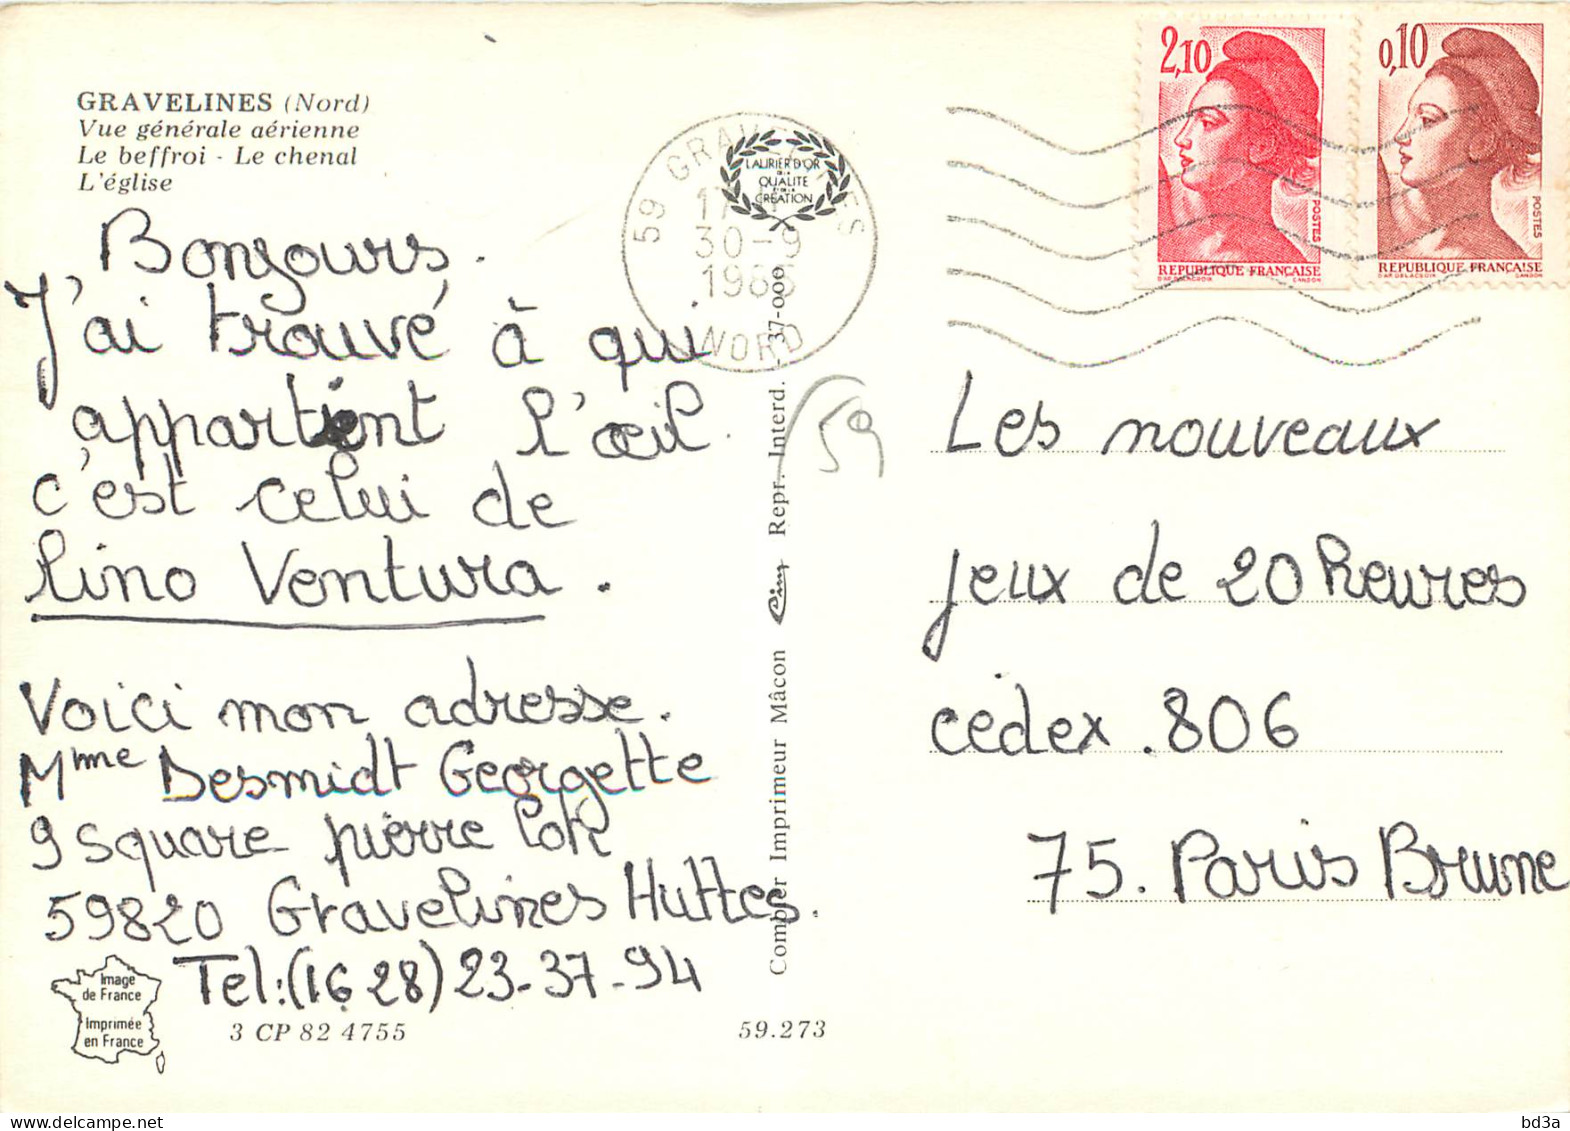 GRAVELINES (Nord)
Vue générale aérienne
Le beffroi - Le chenal
L'église
Bonjours.
J'ai trouvé à qui
appartient l'œil.
c'est celui de
lino Ventura.
Voici mon adresse.
Mme Desmidt Georgette
9 square pierre lok
59820 Gravelines Huttes.
Tel:(16 28) 23-37-94
Image
de France
Imprimée
en France
3 CP 82 4755
59.273
59 GRAVELINES
30-9
1985
NORD
LAURIER D'OR
DE LA
QUALITE
CREATION
Combier Imprimeur Mâcon Cim Repr. Interd. - 37-000
59
2,10
POSTES
REPUBLIQUE FRANÇAISE
D'AP. DELACROIX GANDON
0,10
POSTES
REPUBLIQUE FRANÇAISE
D'AP. DELACROIX GANDON
Les nouveaux
jeux de 20 heures
cédex .806
75. Paris Brune
bd3a